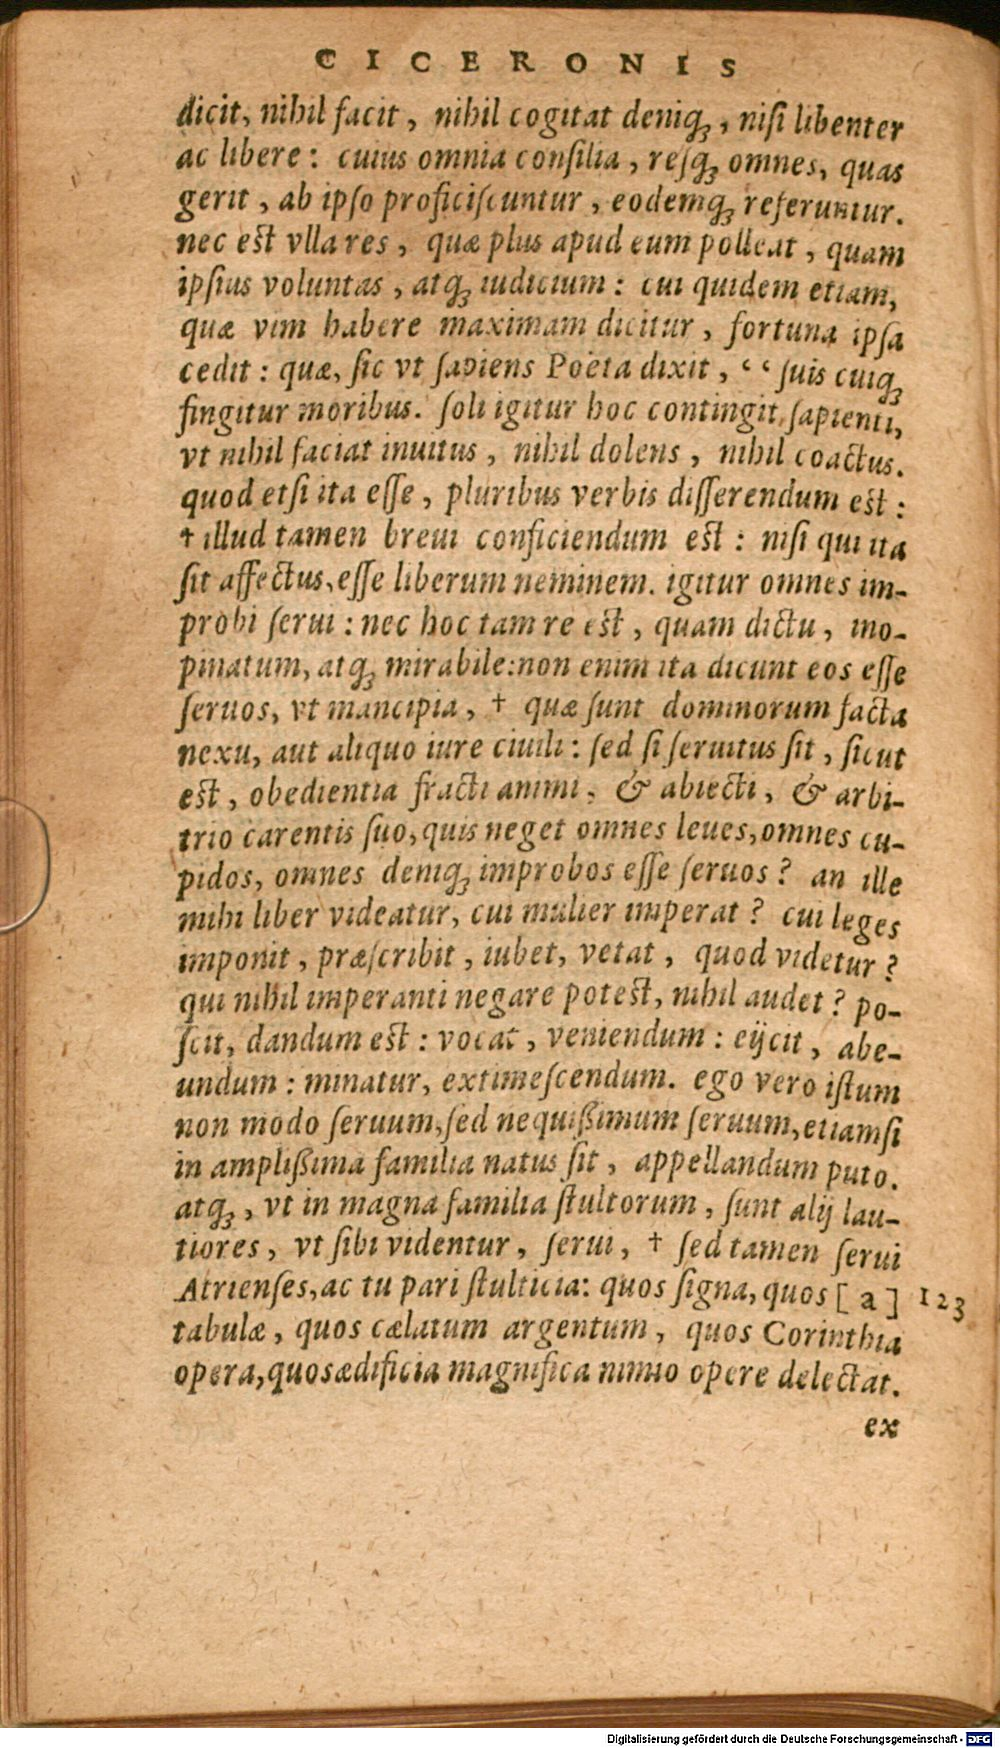 CICERONIS
dicit, nihil facit, nihil cogitat deniqꝫ, niſi libenter
ac libere: cuius omnia conſilia, reſqꝫ omnes, quas
gerit, ab ipſo proficiſcuntur, eodemqꝫ referuntur.
nec eſt vlla res, quæ plus apud eum polleat, quam
ipſius voluntas, atqꝫ iudicium: cui quidem etiam,
quæ vim habere maximam dicitur, fortuna ipſa
cedit: quæ, ſic vt ſapiens Poëta dixit, “ ſuis cuiqꝫ
fingitur moribus. ſoli igitur hoc contingit ſapienti,
vt nihil faciat inuitus, nihil dolens, nihil coactus.
quod etſi ita eſſe, pluribus verbis diſſerendum eſt:
† illud tamen breui conficiendum eſt: niſi qui ita
ſit affectus, eſſe liberum neminem. igitur omnes im-
probi ſerui: nec hoc tam re eſt, quam dictu, ino-
pinatum, atqꝫ mirabile: non enim ita dicunt eos eſſe
ſeruos, vt mancipia, † quæ ſunt dominorum facta
nexu, aut aliquo iure ciuili: ſed ſi ſeruitus ſit, ſicut
eſt, obedientia fracti animi, & abiecti, & arbi-
trio carentis ſuo, quis neget omnes leues, omnes cu-
pidos, omnes deniqꝫ improbos eſſe ſeruos? an ille
mihi liber videatur, cui mulier imperat? cui leges
imponit, præſcribit, iubet, vetat, quod videtur?
qui nihil imperanti negare poteſt, nihil audet? po-
ſcit, dandum eſt: vocat, veniendum: eijcit, abe-
undum: minatur, extimeſcendum. ego vero iſtum
non modo ſeruum, ſed nequißimum ſeruum, etiamſi
in amplißima familia natus ſit, appellandum puto.
atqꝫ, vt in magna familia ſtultorum, ſunt alij lau-
tiores, vt ſibi videntur, ſerui, † ſed tamen ſerui
Atrienſes, ac tu pari ſtulticia: quos ſigna, quos [a] 123
tabulæ, quos cælatum argentum, quos Corinthia
opera, quos ædificia magnifica nimio opere delectat.
ex
Digitalisierung gefördert durch die Deutsche Forschungsgemeinschaft - DFG